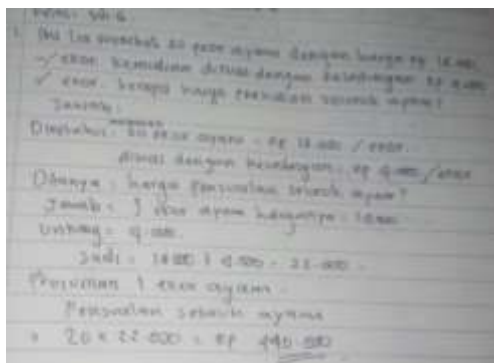 1. Ibu Lia membeli 20 ekor ayam dengan harga Rp 18.000
/ ekor. kemudian dijual dengan keuntungan Rp 4.000
/ ekor. berapa harga penjualan seluruh ayam?
Jawab:
Diketahui: 20 ekor ayam = Rp 18.000 / ekor.
dijual dengan keuntungan = Rp 4.000 / ekor
Ditanya: harga penjualan seluruh ayam?
Jawab: 1 ekor ayam harganya = 18.000
Untung = 4.000
Jadi = 18.000 + 4.000 = 22.000
1 ekor ayam
Penjualan seluruh ayam
= 20 x 22.000 = Rp 440.000